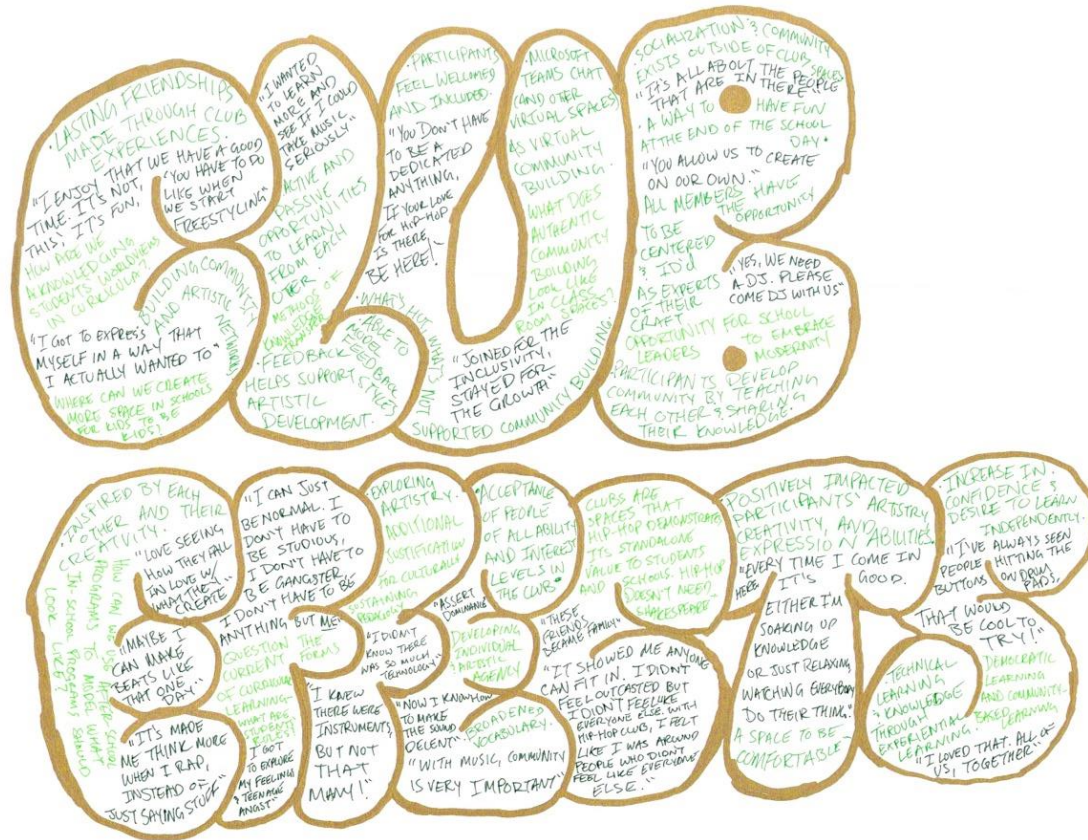 CLUB:
· LASTING FRIENDSHIPS
MADE THROUGH CLUB
EXPERIENCES.
"I ENJOY THAT WE HAVE A GOOD
TIME. IT'S NOT, 'YOU HAVE TO DO
THIS', IT'S FUN, LIKE WHEN
WE START
FREESTYLING"
HOW ARE WE
ACKNOWLEDGING
STUDENTS WORLDVIEWS
IN CURRICULA?
· BUILDING COMMUNITY
AND ARTISTIC NETWORK
"I GOT TO EXPRESS
MYSELF IN A WAY THAT
I ACTUALLY WANTED TO"
WHERE CAN WE CREATE
MORE SPACE IN SCHOOLS
FOR KIDS TO BE
KIDS?
"I WANTED
TO LEARN
MORE AND
SEE IF I COULD
TAKE MUSIC
SERIOUSLY"
ACTIVE AND
PASSIVE
OPPORTUNITIES
TO LEARN
FROM EACH
OTHER
METHODS OF
KNOWLEDGE
· FEEDBACK
HELPS SUPPORT
ARTISTIC
DEVELOPMENT.
· ABLE TO
MODEL
FEEDBACK
STYLES
· PARTICIPANTS
FEEL WELCOMED
AND INCLUDED.
"YOU DON'T HAVE
TO BE A
DEDICATED
ANYTHING,
IF YOUR LOVE
FOR HIP-HOP
IS THERE,
BE HERE!"
· WHAT'S HOT, WHAT'S NOT
SUPPORTED COMMUNITY BUILDING.
"JOINED FOR THE
INCLUSIVITY,
STAYED FOR
THE GROWTH"
· MICROSOFT
TEAMS CHAT
(AND OTHER
VIRTUAL SPACES)
AS VIRTUAL
COMMUNITY
BUILDING.
WHAT DOES
AUTHENTIC
COMMUNITY
BUILDING
LOOK LIKE
IN CLASS
ROOM SPACES?
SOCIALIZATION & COMMUNITY
EXISTS OUTSIDE OF CLUB SPACES
"IT'S ALL ABOUT THE PEOPLE
THAT ARE IN THERE"
· A WAY TO HAVE FUN
AT THE END OF THE SCHOOL
DAY ·
"YOU ALLOW US TO CREATE
ON OUR OWN."
ALL MEMBERS HAVE
THE OPPORTUNITY
TO BE
CENTERED
& ID'd
AS EXPERTS
OF THEIR
CRAFT
"YES, WE NEED
A DJ. PLEASE
COME DJ WITH US"
OPPORTUNITY FOR SCHOOL
LEADERS TO EMBRACE
MODERNITY
· PARTICIPANTS DEVELOP
COMMUNITY BY TEACHING
EACH OTHER & SHARING
THEIR KNOWLEDGE.
EFFECTS
· INSPIRED BY EACH
OTHER AND THEIR
CREATIVITY.
"LOVE SEEING
HOW THEY FALL
IN LOVE W/
WHAT THEY
CREATE"
HOW CAN WE USE AFTER SCHOOL
PROGRAMS TO MODEL WHAT
IN-SCHOOL PROGRAMS SHOULD
LOOK LIKE?
"MAYBE I
CAN MAKE
BEATS LIKE
THAT ONE
DAY."
"IT'S MADE
ME THINK MORE
WHEN I RAP,
INSTEAD OF
JUST SAYING STUFF"
"I CAN JUST
BE NORMAL. I
DON'T HAVE TO
BE STUDIOUS,
I DON'T HAVE TO
BE GANGSTER,
I DON'T HAVE TO BE
ANYTHING BUT ME"
QUESTION THE
CURRENT FORMS
OF CURRICULAR
LEARNING
WHAT ARE
STUDENTS'
ROLES?
"I GOT
TO EXPLORE
MY FEELINGS
& TEENAGE
ANGST"
"I KNEW
THERE WERE
INSTRUMENTS,
BUT NOT
THAT
MANY!"
· EXPLORING
ARTISTRY.
ADDITIONAL
JUSTIFICATION
FOR CULTURALLY
SUSTAINING
PEDAGOGY
"I DIDN'T
KNOW THERE
WAS SO MUCH
TECHNOLOGY"
· ACCEPTANCE
OF PEOPLE
OF ALL ABILITY
AND INTEREST
LEVELS IN
THE CLUB ·
"ASSERT
DOMINANCE"
DEVELOPING
INDIVIDUAL
& ARTISTIC
AGENCY
"NOW I KNOW HOW
TO MAKE
THE SOUND
DECENT"
BROADENED
VOCABULARY.
"WITH MUSIC, COMMUNITY
IS VERY IMPORTANT"
CLUBS ARE
SPACES THAT
HIP-HOP DEMONSTRATES
ITS STANDALONE
VALUE TO STUDENTS
AND SCHOOLS. HIP-HOP
DOESN'T NEED
SHAKESPEARE
"THESE
FRIENDS
BECAME FAMILY"
"IT SHOWED ME ANYONE
CAN FIT IN. I DIDN'T
FEEL OUTCASTED BUT
I DIDN'T FEEL LIKE
EVERYONE ELSE. WITH
HIP-HOP CLUB, I FELT
LIKE I WAS AROUND
PEOPLE WHO DIDN'T
FEEL LIKE EVERYONE
ELSE."
· POSITIVELY IMPACTED
PARTICIPANTS' ARTISTRY,
CREATIVITY, AND
EXPRESSION ABILITIES.
"EVERY TIME I COME IN
HERE IT'S GOOD.
EITHER I'M
SOAKING UP
KNOWLEDGE
OR JUST RELAXING
WATCHING EVERYBODY
DO THEIR THING."
A SPACE TO BE
COMFORTABLE ·
· INCREASE IN
CONFIDENCE &
DESIRE TO LEARN
INDEPENDENTLY.
"I'VE ALWAYS SEEN
PEOPLE HITTING THE
BUTTONS ON DRUM
PADS,
THAT WOULD
BE COOL TO
TRY!"
· TECHNICAL
LEARNING
& KNOWLEDGE
THROUGH
EXPERIENTIAL
LEARNING.
DEMOCRATIC
LEARNING
AND COMMUNITY-
BASED LEARNING
"I LOVED THAT. ALL OF
US, TOGETHER"